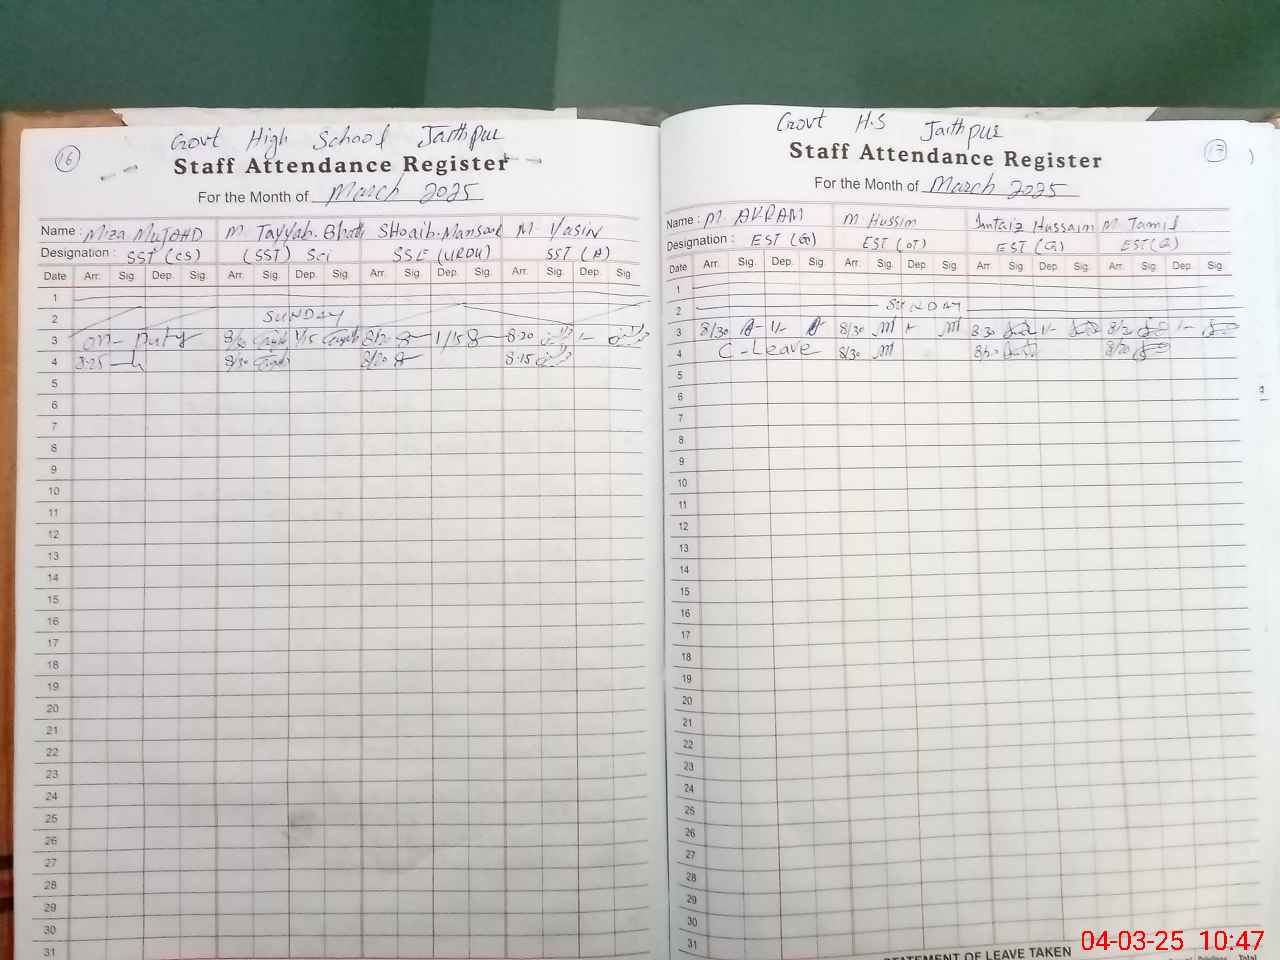 Govt High School Jaithpur
16
Staff Attendance Register
For the Month of March 2025
Name : Miza Mujahd M Tayyab. Bhatti SHoaib. Mansood M Yasin
Designation : SST (CS) (SST) Sci SSE (URDU) SST (A)
Date Arr. Sig. Dep. Sig. Arr. Sig. Dep. Sig. Arr. Sig. Dep. Sig. Arr. Sig. Dep. Sig.
1
2 SUNDAY
3 on- Duty 8/20 1/15 8/20 1/15 8-20 1-
4 8-25 8/30 8/20 8-15
5
6
7
8
9
10
11
12
13
14
15
16
17
18
19
20
21
22
23
24
25
26
27
28
29
30
31
Govt H.S Jaithpur
17
Staff Attendance Register
For the Month of March 2025
Name : M. AKRAM M Hussim Imtaiz Hussaim M Jamil
Designation : EST (G) EST (OT) EST (G) EST (G)
Date Arr. Sig. Dep. Sig. Arr. Sig. Dep. Sig. Arr. Sig. Dep. Sig. Arr. Sig. Dep. Sig.
1
2 SUNDAY
3 8/30 1/- 8/30 8-30 1/- 8/20 1-
4 C-Leave 8/30 8/20 8/20
5
6
7
8
9
10
11
12
13
14
15
16
17
18
19
20
21
22
23
24
25
26
27
28
29
30
31
STATEMENT OF LEAVE TAKEN
Total
04-03-25 10:47